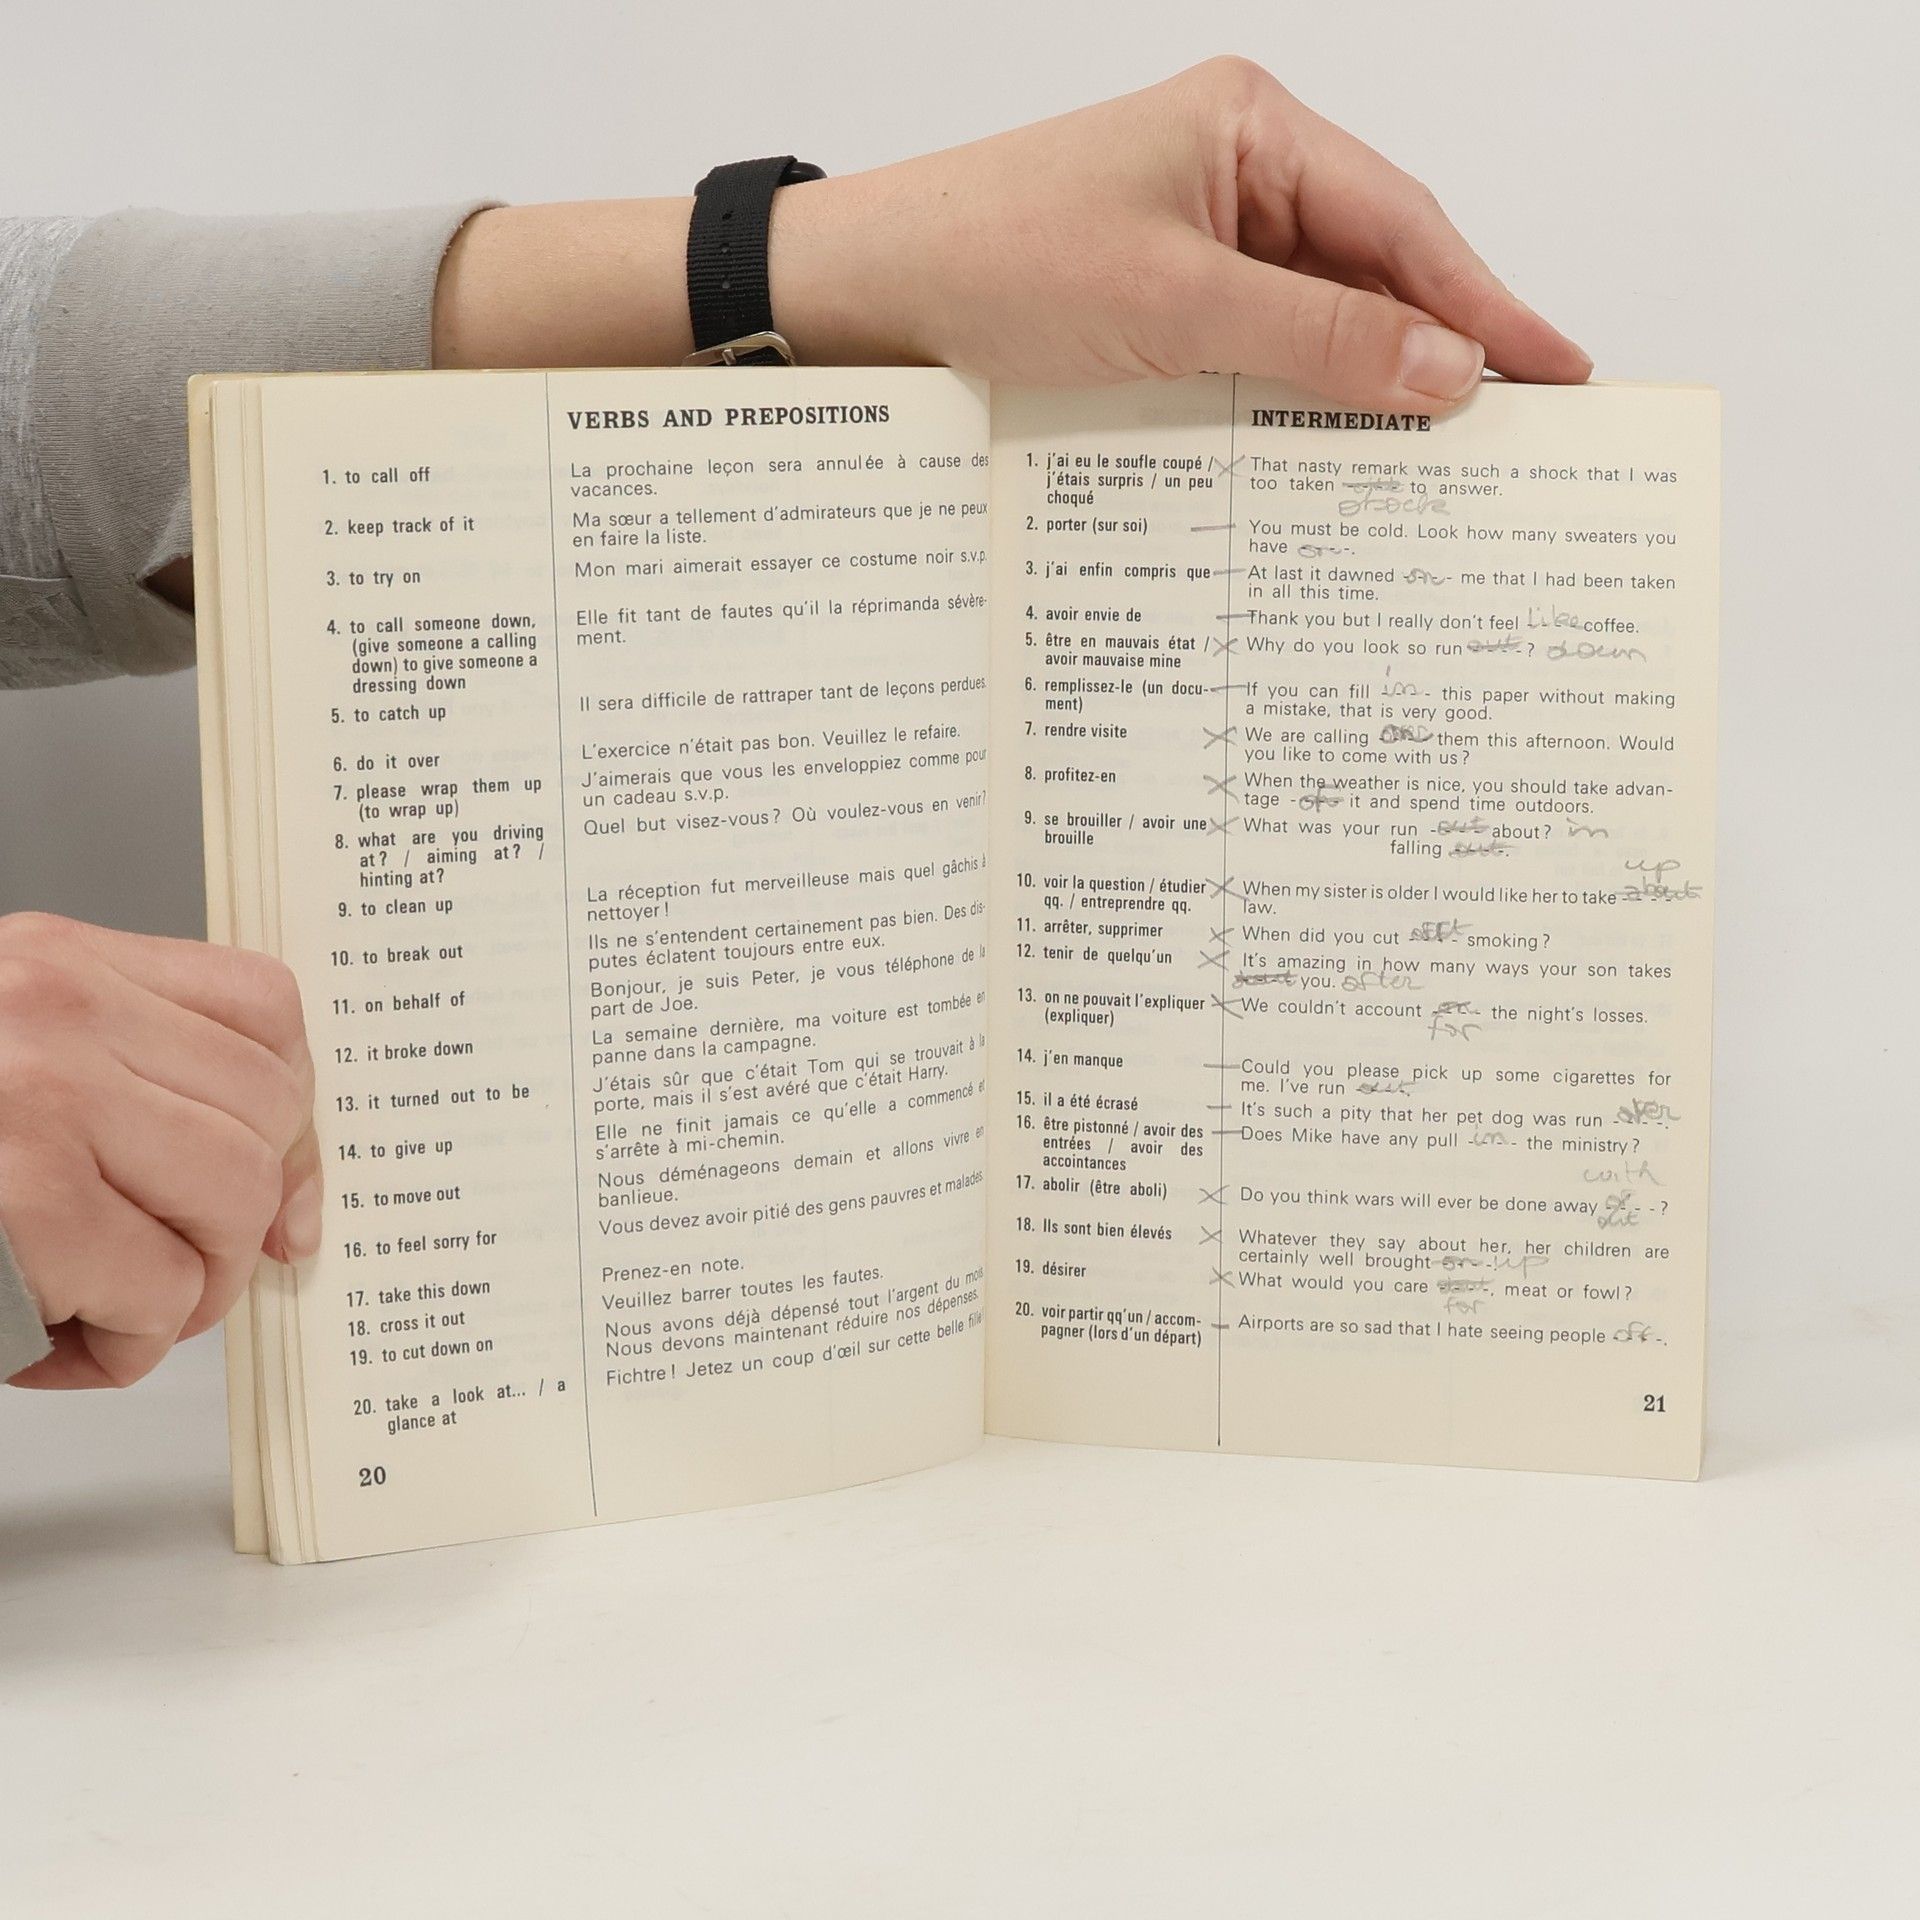 VERBS AND PREPOSITIONS
1. to call off
La prochaine leçon sera annulée à cause des
vacances.
2. keep track of it
Ma sœur a tellement d'admirateurs que je ne peux
en faire la liste.
3. to try on
Mon mari aimerait essayer ce costume noir s.v.p.
4. to call someone down,
(give someone a calling
down) to give someone a
dressing down
Elle fit tant de fautes qu'il la réprimanda sévère-
ment.
5. to catch up
Il sera difficile de rattraper tant de leçons perdues.
6. do it over
L'exercice n'était pas bon. Veuillez le refaire.
7. please wrap them up
(to wrap up)
J'aimerais que vous les enveloppiez comme pour
un cadeau s.v.p.
8. what are you driving
at? / aiming at? /
hinting at?
Quel but visez-vous? Où voulez-vous en venir?
9. to clean up
La réception fut merveilleuse mais quel gâchis à
nettoyer!
10. to break out
Ils ne s'entendent certainement pas bien. Des dis-
putes éclatent toujours entre eux.
11. on behalf of
Bonjour, je suis Peter, je vous téléphone de la
part de Joe.
12. it broke down
La semaine dernière, ma voiture est tombée en
panne dans la campagne.
13. it turned out to be
J'étais sûr que c'était Tom qui se trouvait à la
porte, mais il s'est avéré que c'était Harry.
14. to give up
Elle ne finit jamais ce qu'elle a commencé et
s'arrête à mi-chemin.
15. to move out
Nous déménageons demain et allons vivre en
banlieue.
16. to feel sorry for
Vous devez avoir pitié des gens pauvres et malades.
17. take this down
Prenez-en note.
18. cross it out
Veuillez barrer toutes les fautes.
19. to cut down on
Nous avons déjà dépensé tout l'argent du mois.
Nous devons maintenant réduire nos dépenses.
20. take a look at... / a
glance at
Fichtre! Jetez un coup d'œil sur cette belle fille!
20
INTERMEDIATE
1. j'ai eu le soufle coupé /
j'étais surpris / un peu
choqué
That nasty remark was such a shock that I was
too taken ---- to answer.
2. porter (sur soi)
You must be cold. Look how many sweaters you
have on.
3. j'ai enfin compris que
At last it dawned on me that I had been taken
in all this time.
4. avoir envie de
Thank you but I really don't feel like coffee.
5. être en mauvais état /
avoir mauvaise mine
Why do you look so run out? down
6. remplissez-le (un docu-
ment)
If you can fill in this paper without making
a mistake, that is very good.
7. rendre visite
We are calling ---- them this afternoon. Would
you like to come with us?
8. profitez-en
When the weather is nice, you should take advan-
tage of it and spend time outdoors.
9. se brouiller / avoir une
brouille
What was your run out about? in
falling out.
10. voir la question / étudier
qq. / entreprendre qq.
up
When my sister is older I would like her to take about
law.
11. arrêter, supprimer
When did you cut ---- smoking?
12. tenir de quelqu'un
It's amazing in how many ways your son takes
---- you. after
13. on ne pouvait l'expliquer
(expliquer)
We couldn't account on the night's losses.
for
14. j'en manque
Could you please pick up some cigarettes for
me. I've run out.
15. il a été écrasé
It's such a pity that her pet dog was run over.
16. être pistonné / avoir des
entrées / avoir des
accointances
Does Mike have any pull in the ministry?
17. abolir (être aboli)
with
Do you think wars will ever be done away of?
out
18. Ils sont bien élevés
Whatever they say about her, her children are
certainly well brought on. up
19. désirer
What would you care ----, meat or fowl?
for
20. voir partir qq'un / accom-
pagner (lors d'un départ)
Airports are so sad that I hate seeing people off.
21